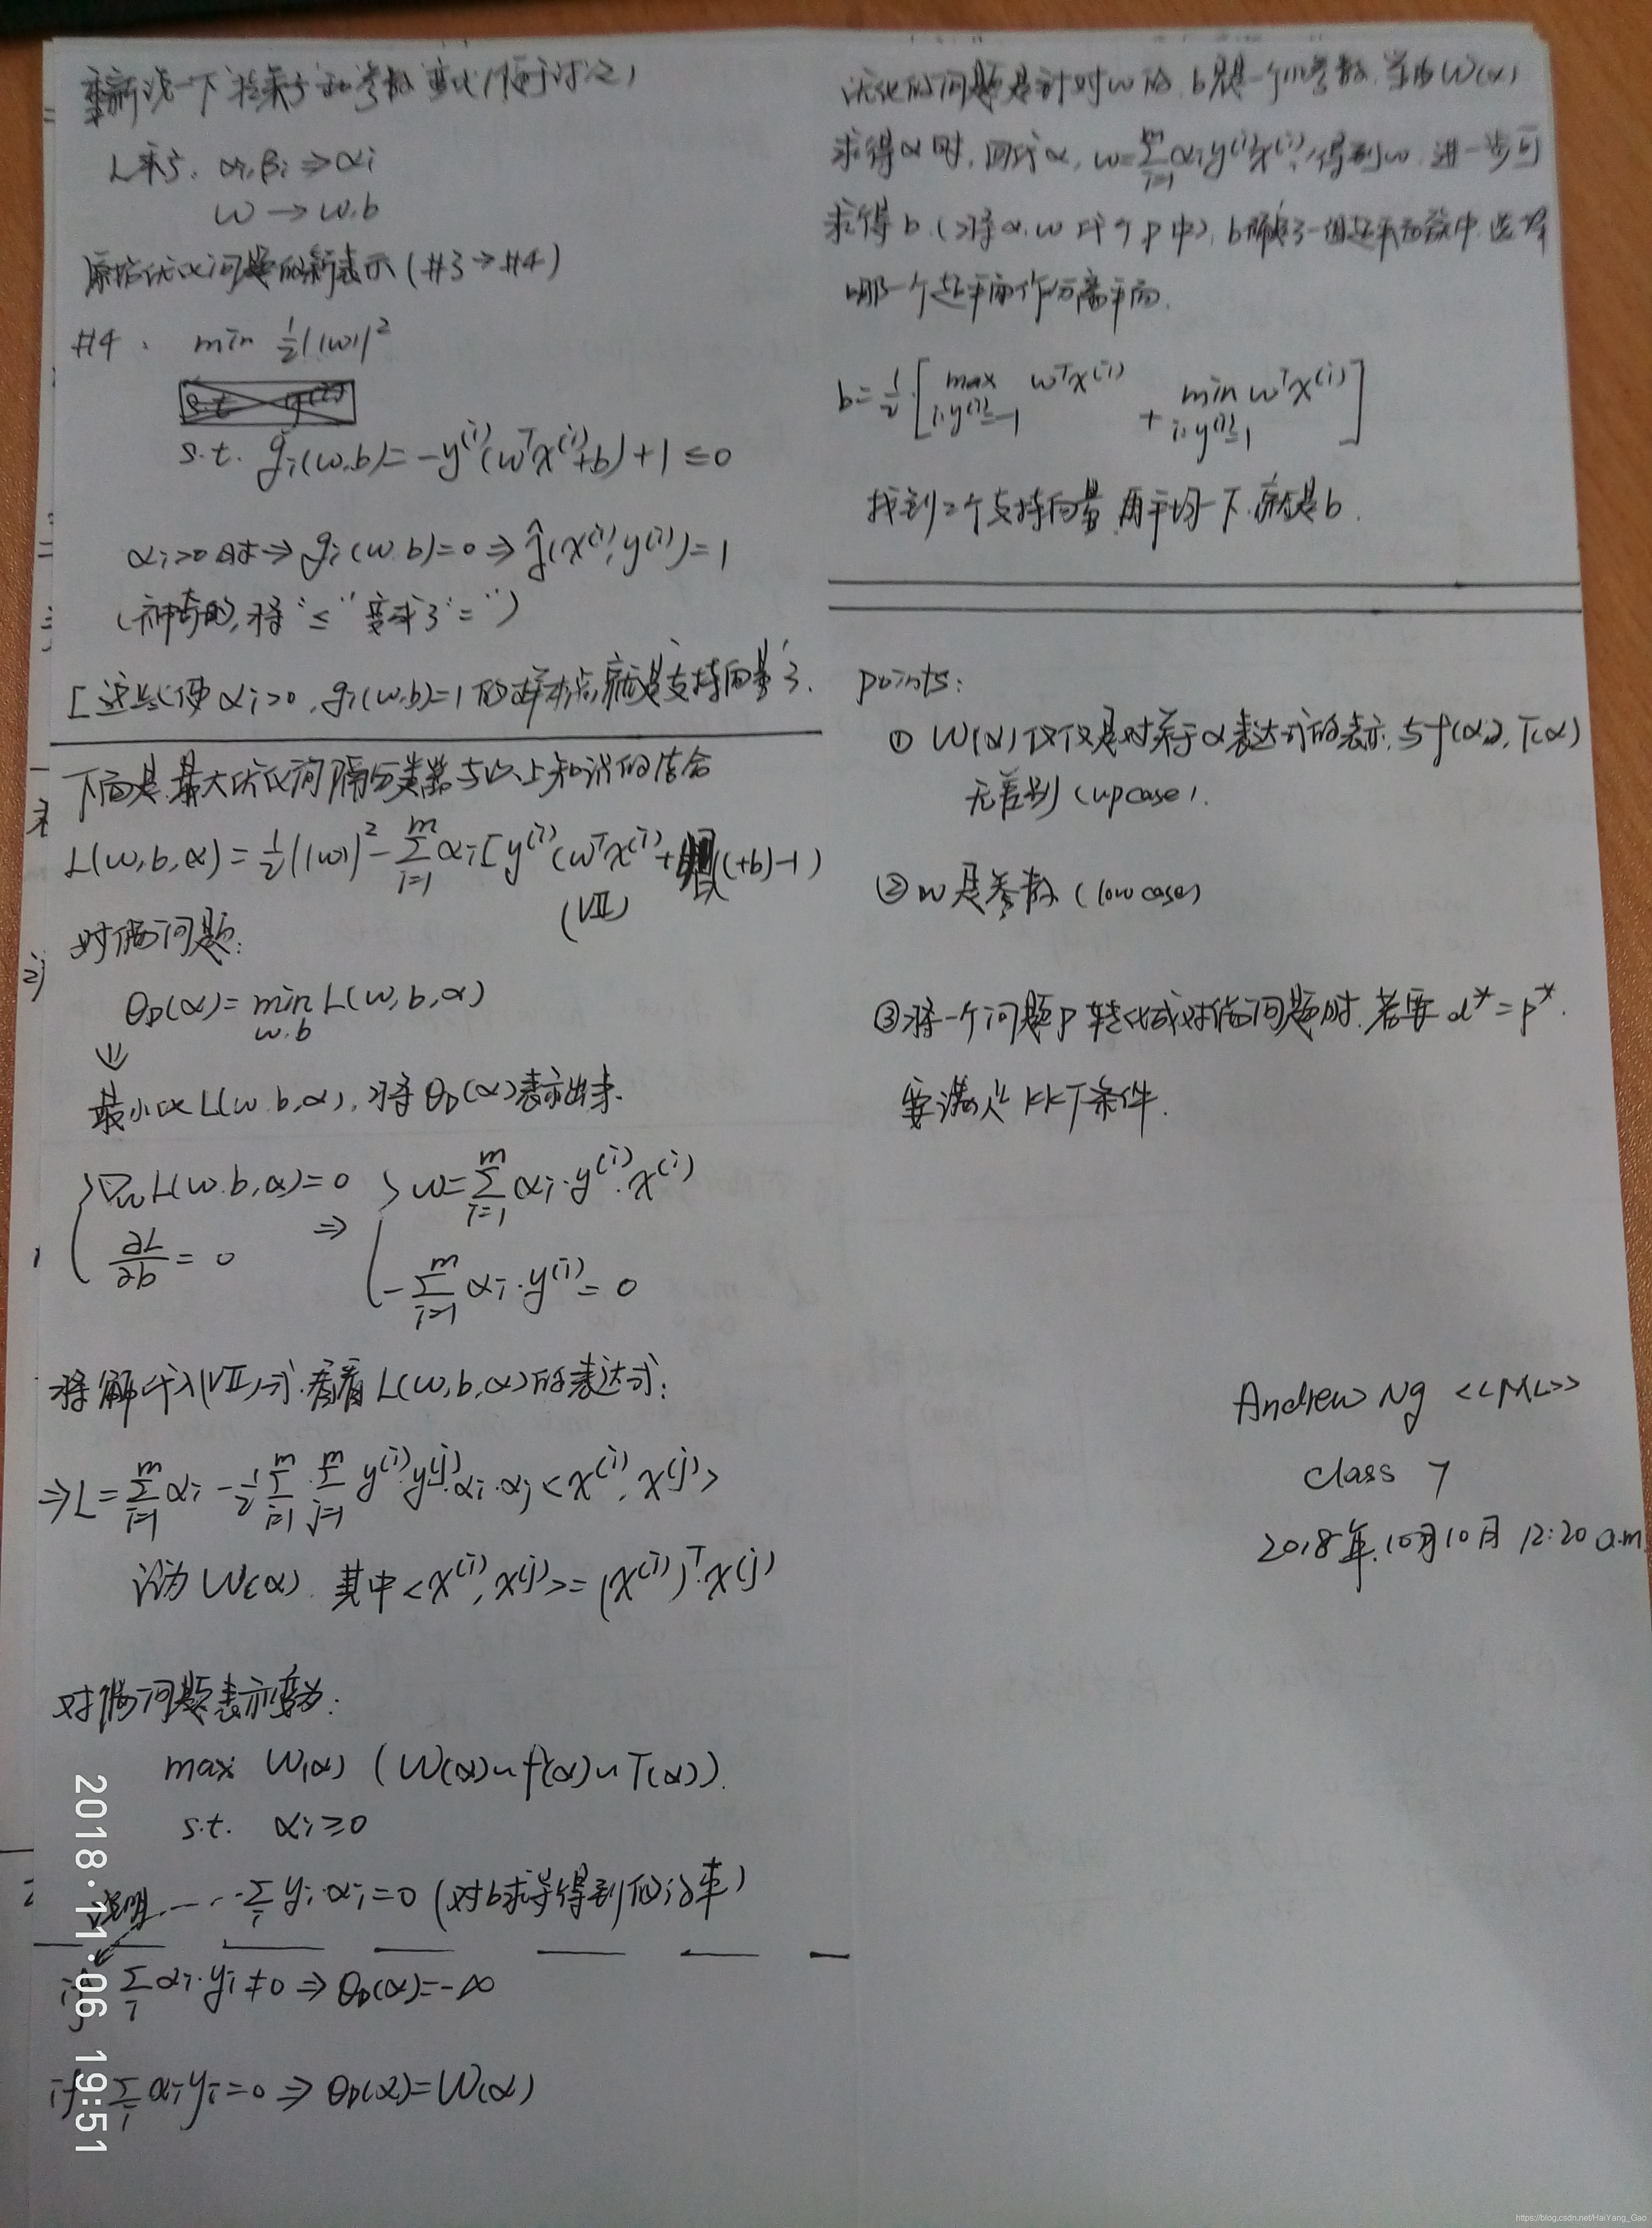 重新说一下拉乘子和参数变化(便于讨论)
L乘子: αi,βi ⇒ αi
w → w.b
原始优化问题的新表示(#3→#4)
#4. min ½||w||²
s.t. gi(w.b)= -y⁽ⁱ⁾(wᵀx⁽ⁱ⁾+b)+1 ≤0
αi>0时⇒ gi(w.b)=0 ⇒ ĝ(x⁽ⁱ⁾,y⁽ⁱ⁾)=1
(神奇的,将"≤"变成了"=")
[这些使αi>0, gi(w.b)=1的样本点就是支持向量了.
下面是最大优化间隔分类器与以上知识的结合
L(w,b,α) = ½||w||² - Σ_{i=1}^{m} αi[y⁽ⁱ⁾(wᵀx⁽ⁱ⁾ + (+b)-1)
(VII)
对偶问题:
θD(α)= min_{w.b} L(w,b,α)
⇓
最小化L(w.b,α), 将θD(α)表示出来.
∇w L(w.b,α)=0 ⇒ w=Σ_{i=1}^{m} αi·y⁽ⁱ⁾·x⁽ⁱ⁾
∂L/∂b = 0 -Σ_{i=1}^{m} αi·y⁽ⁱ⁾= 0
将解代入(VII)式.看看L(w,b,α)的表达式:
⇒L=Σ_{i=1}^{m} αi - ½ Σ_{i=1}^{m}·Σ_{j=1}^{m} y⁽ⁱ⁾·y⁽ʲ⁾·αi·αj<x⁽ⁱ⁾,x⁽ʲ⁾>
记为W(α). 其中<x⁽ⁱ⁾,x⁽ʲ⁾>=(x⁽ⁱ⁾)ᵀ·x⁽ʲ⁾
对偶问题表示变为:
max W(α) (W(α)~f(α)~T(α)).
s.t. αi≥0
说明 ---- Σ_i yi·αi=0 (对b求导得到的约束)
if Σ_i αi·yi≠0 ⇒ θD(α)=-∞
if Σ_i αiyi=0 ⇒ θD(α)=W(α)
2018·11·06 19:51
优化的问题是针对w的, b只是一个小参数. 当由W(α)
求得α时, 回代α, w=Σ_{i=1}^{m} αiy⁽ⁱ⁾x⁽ⁱ⁾, 得到w, 进一步可
求得b.(将α.w代入P中), b确定了一组超平面族中,选择
哪一个超平面作分离平面.
b=½·[max_{i:y⁽ⁱ⁾=-1} wᵀx⁽ⁱ⁾ + min_{i:y⁽ⁱ⁾=1} wᵀx⁽ⁱ⁾]
找到2个支持向量,再平均一下,就是b.
points:
① W(α)仅仅是对关于α表达式的表示,与f(α),T(α)
无差别(upcase).
② w是参数(lowcase)
③将一个问题P转化成对偶问题时.若要 d*=p*.
要满足KKT条件.
Andrew Ng <<ML>>
class 7
2018年.10月10月 12:20 a.m
https://blog.csdn.net/HaiYang_Gao